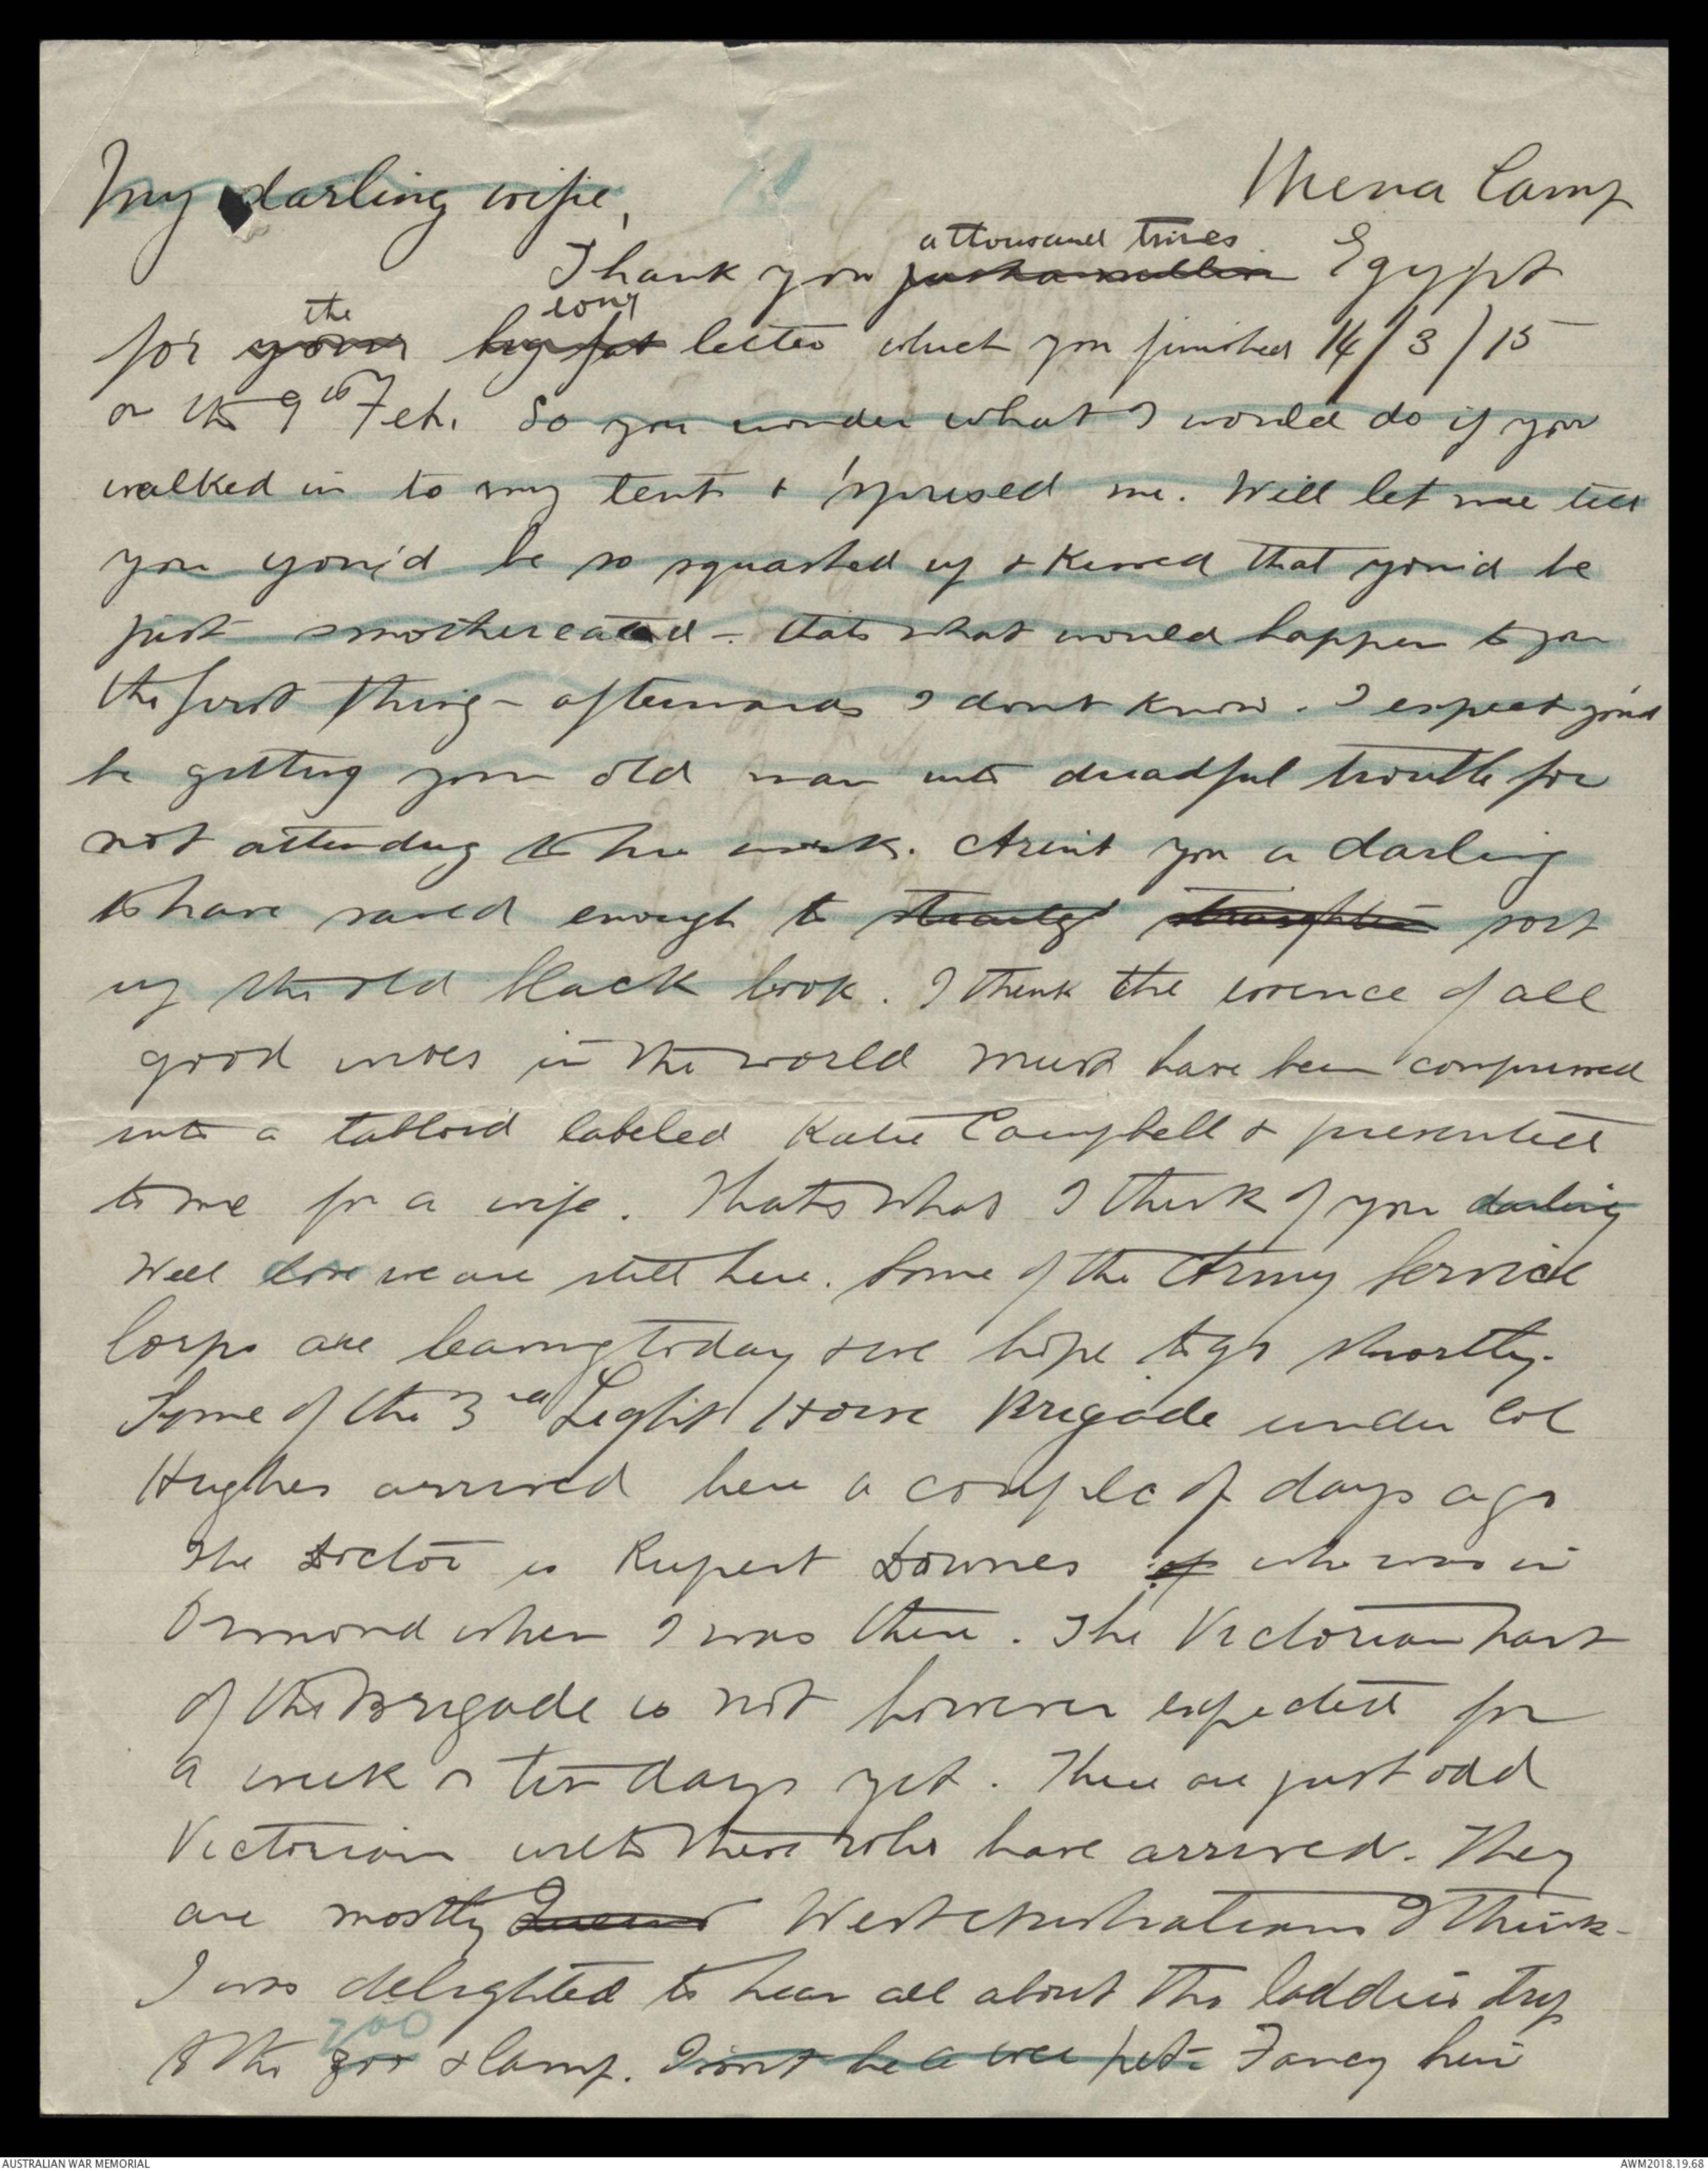 My darling wifie,
Mena Camp
a thousand times
Thank you Egypt
the long
for your big fat letter which you finished 14/3/15
on the 9th Feb. So you wonder what I would do if you
walked in to my tent & 'sprised me. Well let me tell
you you'd be so squashed up & kissed that you'd be
just smothercated - thats what would happen to you
the first thing - afterwards I dont know. I expect you'd
be getting your old man into dreadful trouble for
not attending to his work. Arint you a darling
to have saved enough to sort
up the old black book. I think the essence of all
good wives in the world must have been compressed
into a tabloid labeled Katie Campbell & presented
to me for a wife. Thats what I think of you darling
Well love we are still here. Some of the Army Service
Corps are leaving today & we hope to go shortly.
Some of the 3rd Light Horse Brigade under Col
Hughes arrived here a couple of days ago
The Doctor is Rupert Downes who was in
Ormond when I was there. The Victorian part
of the Brigade is not however expected for
a week or ten days yet. There are just odd
Victorians with those who have arrived. They
are mostly West Australians I think.
I was delighted to hear all about the laddies trip
zoo
to the zoo & camp. Isont he a wee pet - Fancy him
AUSTRALIAN WAR MEMORIAL
AWM2018.19.68